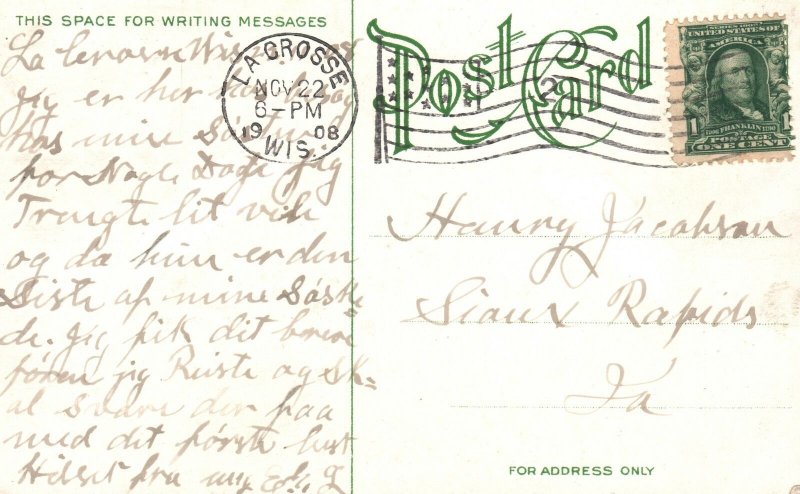 THIS SPACE FOR WRITING MESSAGES
La Crosse Wis
Jeg er her
hos mine
for Nogle Dage Jeg
Trængte lit vile
og da hun er den
Siste af mine Søske
de. Jeg fik dit brev
føren jeg Reiste og Sk=
al svare der paa
med dit første
Hilset fra
LA CROSSE
NOV 22
6-PM
1908
WIS.
Post Card
SERIES 1902
UNITED STATES OF
AMERICA
1706 FRANKLIN 1790
POSTAGE
1 ONE CENT 1
Henry Jacobson
Sioux Rapids
Ia
FOR ADDRESS ONLY